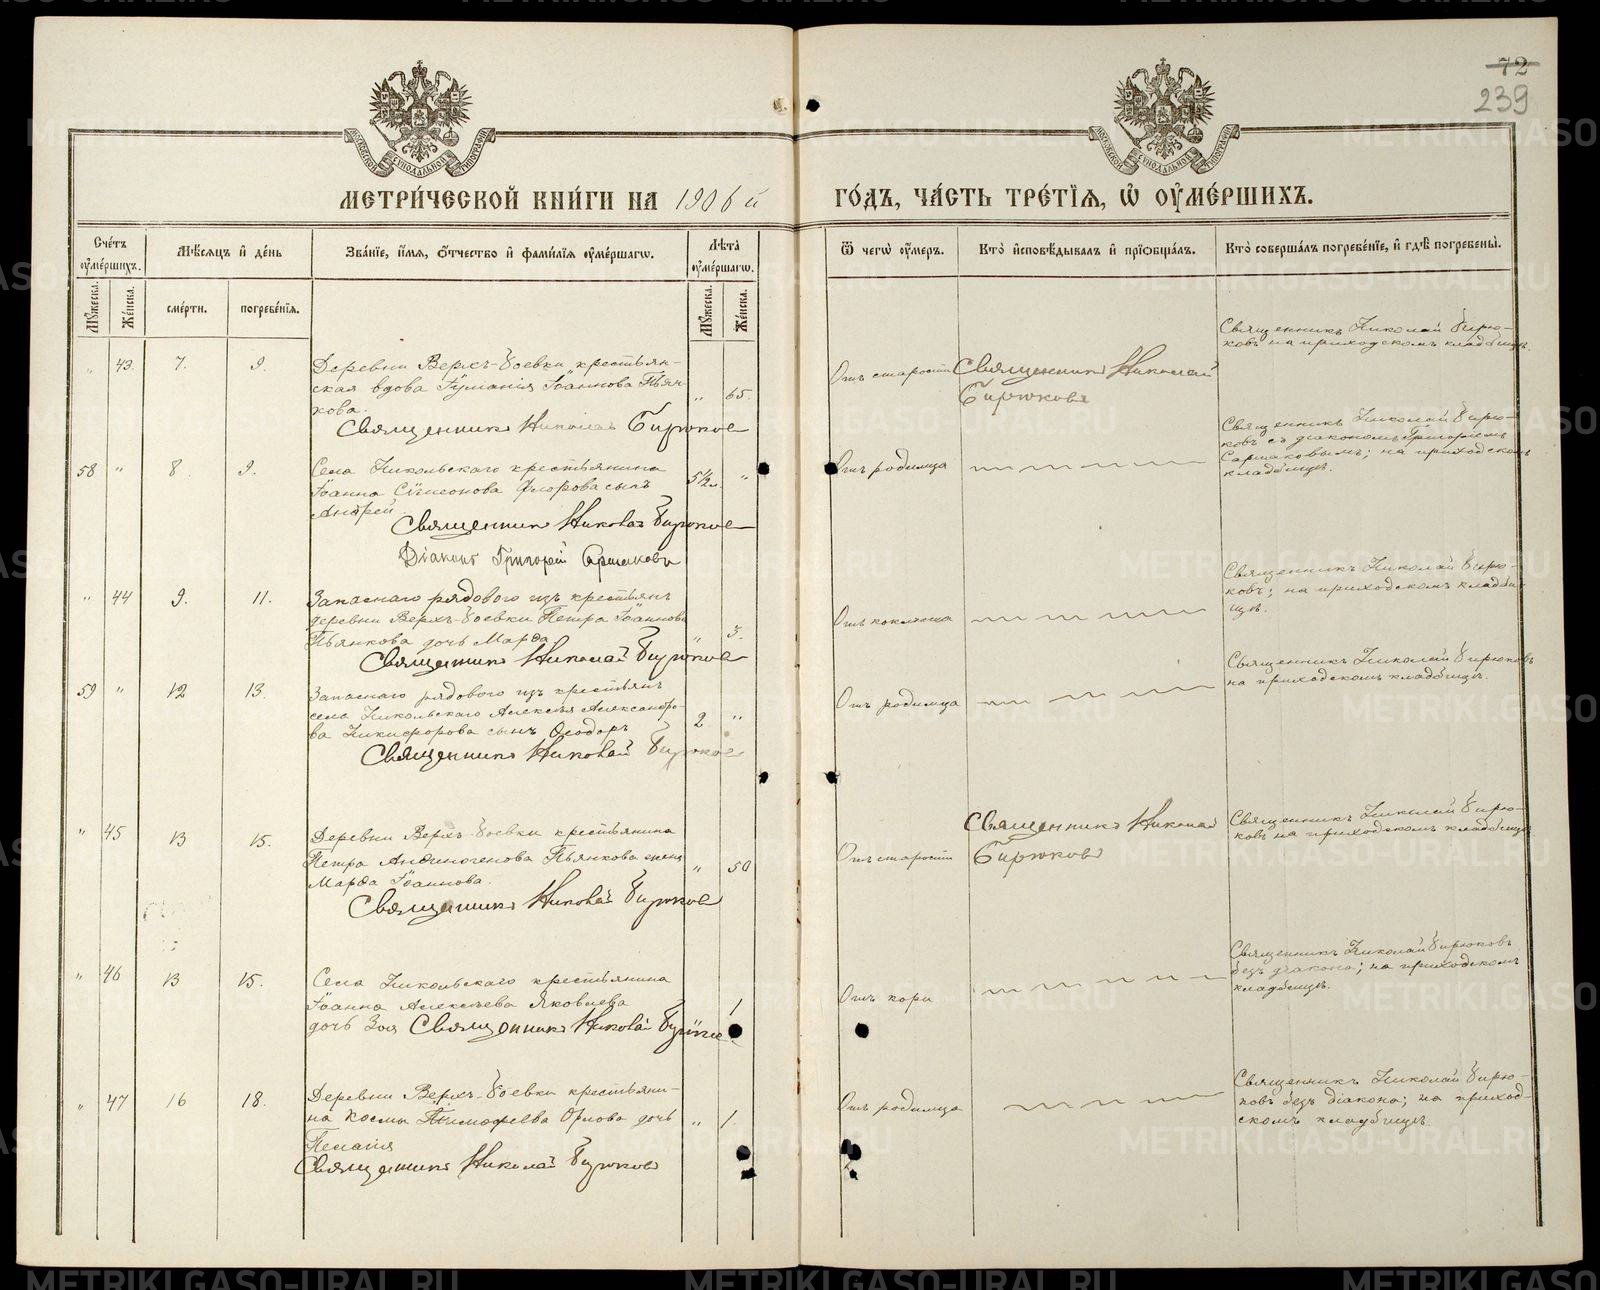 72
239
МОСКОВСКОЙ СѴНОДАЛЬНОЙ ТИПОГРАФІИ
МОСКОВСКОЙ СѴНОДАЛЬНОЙ ТИПОГРАФІИ
МЕТРИ́ЧЕСКОЙ КНИ́ГИ НА 1906й
ГО́ДЪ, ЧА́СТЬ ТРЕ́ТІѦ, Ѡ ОУМЕ́РШИХЪ.
Сче́тъ оуме́ршихъ.
Мѣ́сѧцъ и҆ де́нь
Зва́нїе, и҆́мѧ, ѻ҆́тчество и҆ фами́лїѧ оуме́ршагѡ.
Лѣ́та оуме́ршагѡ.
Ѿ чегѡ̀ оу́меръ.
Кто̀ и҆сповѣ́дывалъ и҆ прїѡбща́лъ.
Кто̀ соверша́лъ погребе́нїе, и҆ гдѣ̀ погребены̀.
Мꙋ́жеска.
Же́нска.
сме́рти.
погребе́нїѧ.
Мꙋ́жеска.
Же́нска.
„ 43. 7. 9.
Деревни Верхъ-Боевки крестьян-
ская вдова Іуліанія Іоаннова Пьян-
кова.
„ 65.
Священникъ Николай Бирюков
Отъ старости
Священникъ Николай
Бирюковъ
Священникъ Николай Бирю-
ковъ на приходскомъ кладбищѣ.
58 „ 8 9.
Села Никольскаго крестьянина
Іоанна Сѵмеонова Флорова сынъ
Андрей.
5½ „
Священник Николай Бирюков
Діаконъ Григорій Саршаковъ
Отъ родимца
Священникъ Николай Бирю-
ковъ съ діакономъ Григоріемъ
Саршаковымъ; на приходскомъ
кладбищѣ.
„ 44 9. 11.
Запаснаго рядового изъ крестьянъ
деревни Верхъ-Боевки Петра Іоаннова
Пьянкова дочь Марѳа
„ 3.
Священникъ Николай Бирюков
Отъ коклюша
Священникъ Николай Бирю-
ковъ; на приходскомъ кладби-
щѣ.
59 „ 12 13.
Запаснаго рядового изъ крестьянъ
села Никольскаго Алексѣя Александро-
ва Никифорова сынъ Ѳеодоръ
2 „
Священникъ Николай Бирюков
Отъ родимца
Священникъ Николай Бирюковъ
на приходскомъ кладбищѣ.
„ 45 13 15.
Деревни Верхъ-Боевки крестьянина
Петра Анѳиногенова Пьянкова жена
Марѳа Іоаннова.
„ 50
Священникъ Николай Бирюков
Отъ старости
Священникъ Николай
Бирюковъ
Священникъ Николай Бирю-
ковъ на приходскомъ кладбищѣ
„ 46 13 15.
Села Никольскаго крестьянина
Іоанна Алексѣева Яковлева
дочь Зоя
1
Священникъ Николай Бирюков
Отъ кори
Священникъ Николай Бирюковъ
безъ діакона; на приходскомъ
кладбищѣ.
„ 47 16 18.
Деревни Верхъ-Боевки крестьяни-
на Косьмы Тимофеева Орлова дочь
Пелагія
„ 1.
Священникъ Николай Бирюковъ
Отъ родимца
Священникъ Николай Бирю-
ковъ безъ діакона; на приход-
скомъ кладбищѣ.
METRIKI.GASO-URAL.RU